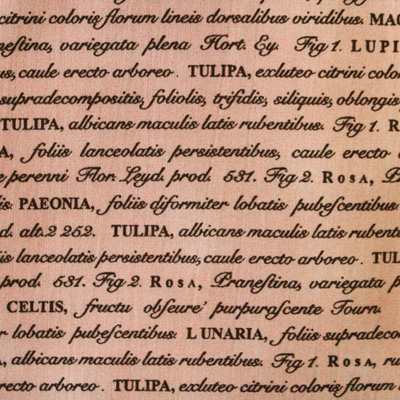 citrini coloris florum lineis dorsalibus viridibus. MAG
neſtina, variegata plena Hort. Ey. Fig 1. LUPI
us, caule erecto arboreo. TULIPA, excluteo citrini color
supradecompositis, foliolis, trifidis, siliquis, oblongis,
TULIPA, albicans maculis latis rubentibus. Fig 1. R
A, foliis lanceolatis persistentibus, caule erecto
e perenni Flor. Leyd. prod. 531. Fig 2. ROSA, P
is. PAEONIA, foliis difformiter lobatis pubeſcentibus.
d. alt. 2 252. TULIPA, albicans maculis latis rubentibus.
iis lanceolatis persistentibus, caule erecto arboreo. TUL
prod. 531. Fig 2. ROSA, Praneſtina, variegata p
CELTIS, fructu obſcure' purpuraſcente Tourn.
r lobatis pubeſcentibus. LUNARIA, foliis supradeco
A, albicans maculis latis rubentibus. Fig 1. ROSA, ru
recto arboreo. TULIPA, excluteo citrini coloris florum